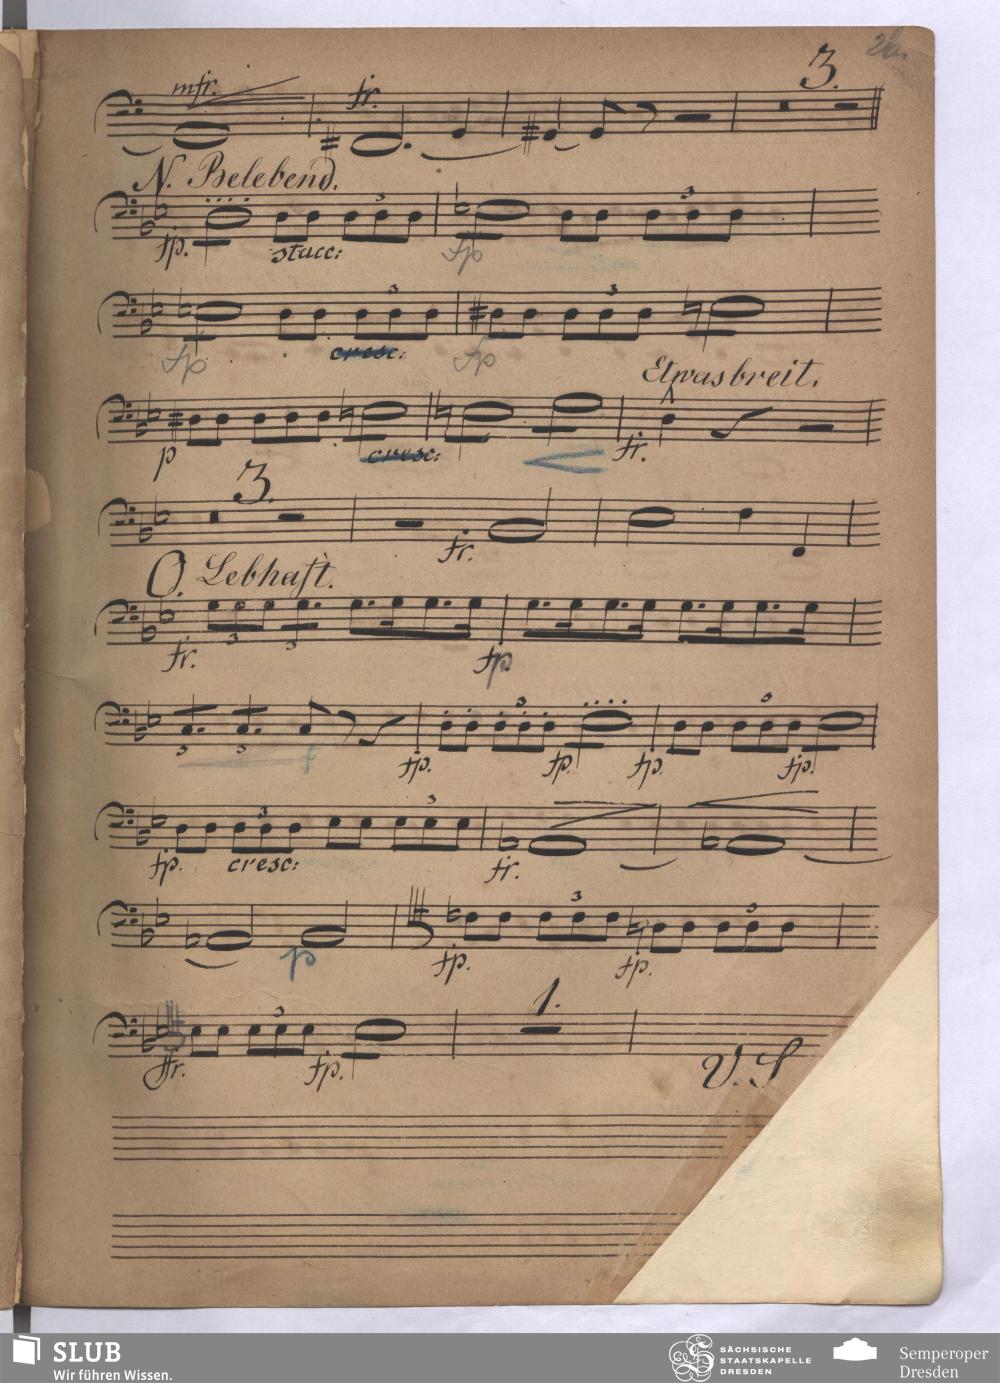 3.
mfr. fr.
N. Belebend.
fp. stacc: fp
3
3
fp cresc: fp
Etwas breit.
p cresc: fr.
3.
fr.
O. Lebhaft.
3 3
fr. fp
3 3 3 3
f fp. fp. fp. fp.
3 3
fp. cresc: fr.
3 3
p fp. fp.
3 1.
ffr. fp. V. S
SLUB
Wir führen Wissen.
SÄCHSISCHE
STAATSKAPELLE
DRESDEN
Semperoper
Dresden